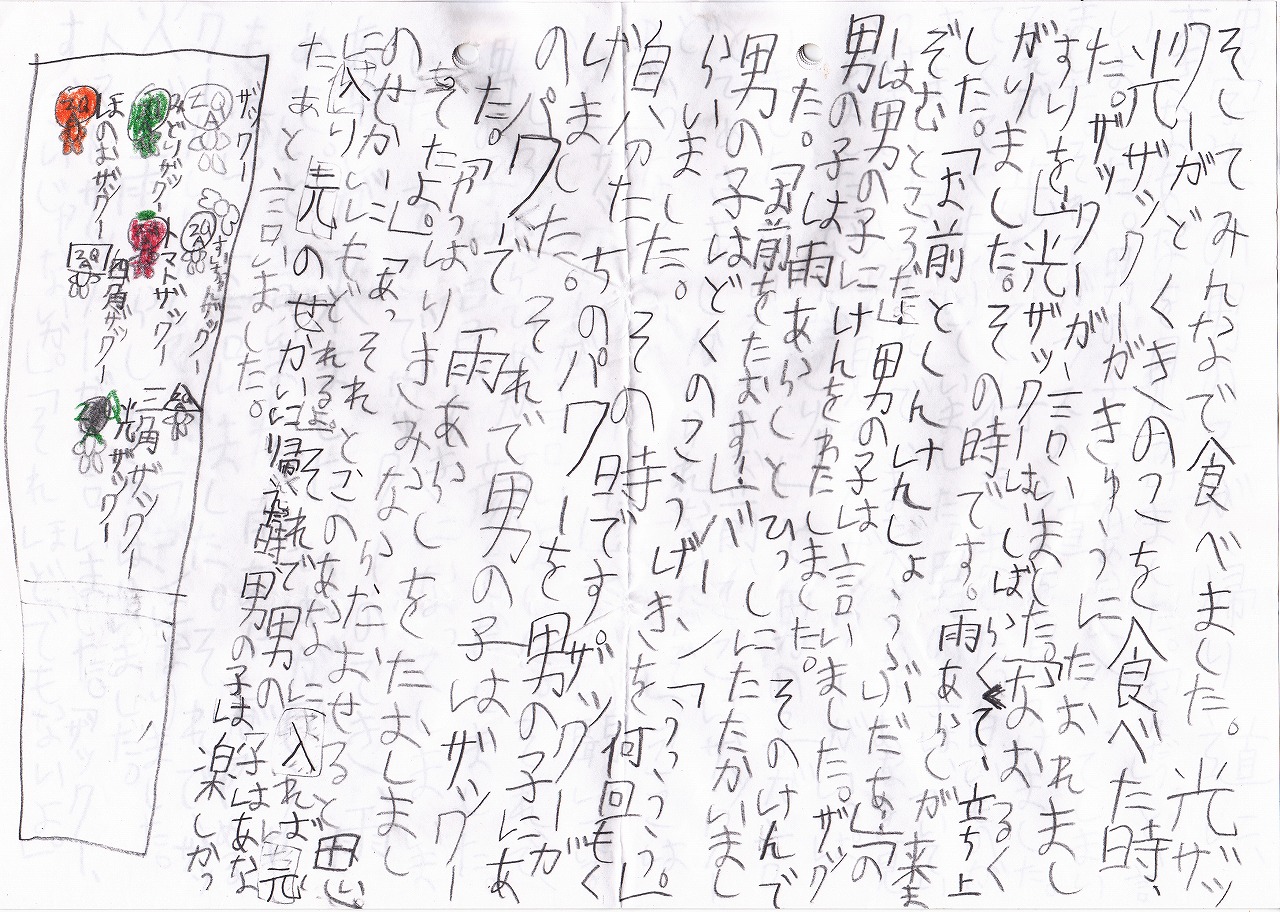 そしてみんなで食べました。光ザッ
クーがどくきのこを食べた時、
光ザックーがきゅうにたおれまし
た。ザックーが言いました。「なおるく
すりを」光ザックーはしばらくて、立ち上
がりました。その時です。雨あらしが来ま
した。「お前としんけんしょうぶだあ」「の
ぞむところだ」男の子は言いました。ザック
ーは男の子にけんをわたしました。そのけんで
男の子は雨あらしとひっしにたたかいまし
た。「お前をたおす!」バーン「うっうっ」
男の子はどくのこうげきを何回もく
らいました。その時ですザックーが
自分たちのパワーを男の子にあ
げました。それで男の子はザックー
のパワーで雨あらしをたおしまし
た。「やっぱりきみならたおせると思
ってたよ。」「あっそれとこのあなに入れば元
のせかいにもどれるよ」それで男の子はあな
に入り元のせかいに帰り男の子は「楽しかっ
たあ」と言いました。
ザックー
ZQA
ザックー
ZQA
みどりザックー
トマトザックー
三角ザックー
ZQA
ほのおザックー
ZQA
四角ザックー
ZQA
光ザックー